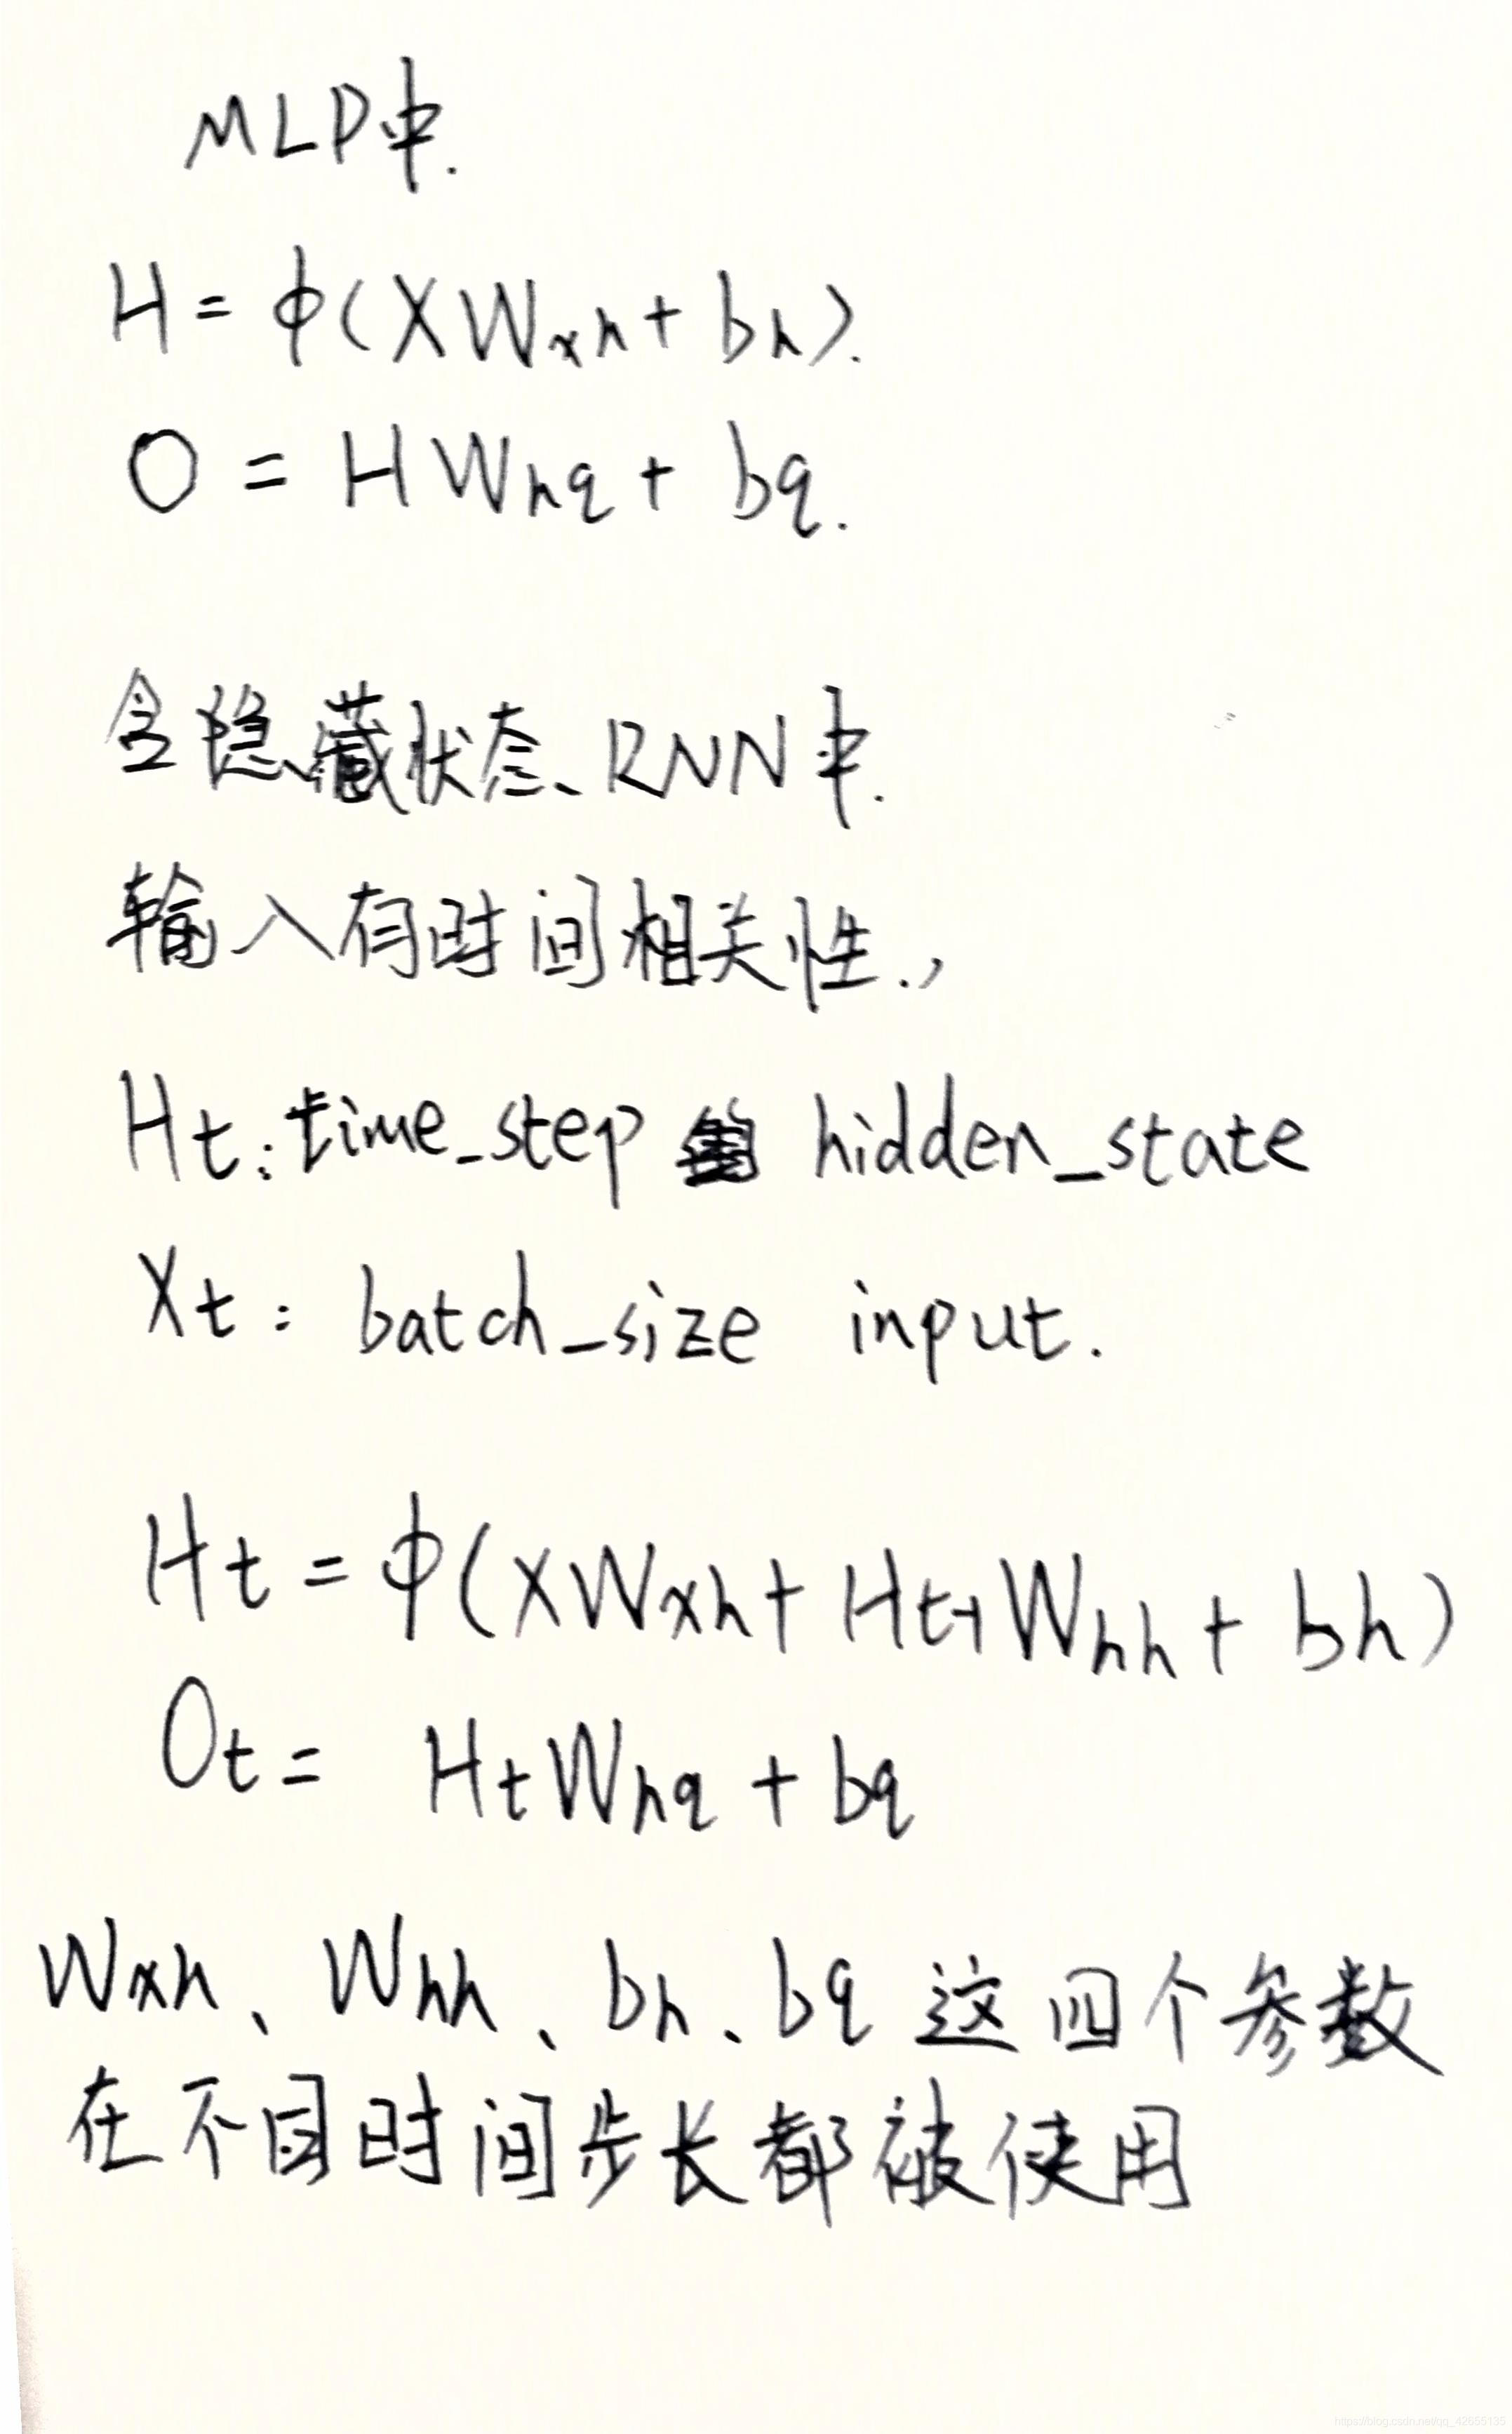 MLP中.
H = φ(XWxh + bh).
O = HWhq + bq.
含隐藏状态、RNN中.
输入有时间相关性.,
Ht: time_step hidden_state
Xt: batch_size input.
Ht = φ(XWxh + Ht-1Whh + bh)
Ot = HtWhq + bq
Wxh、Whh、bh、bq 这四个参数
在不同时间步长都被使用
https://blog.csdn.net/qq_42655135